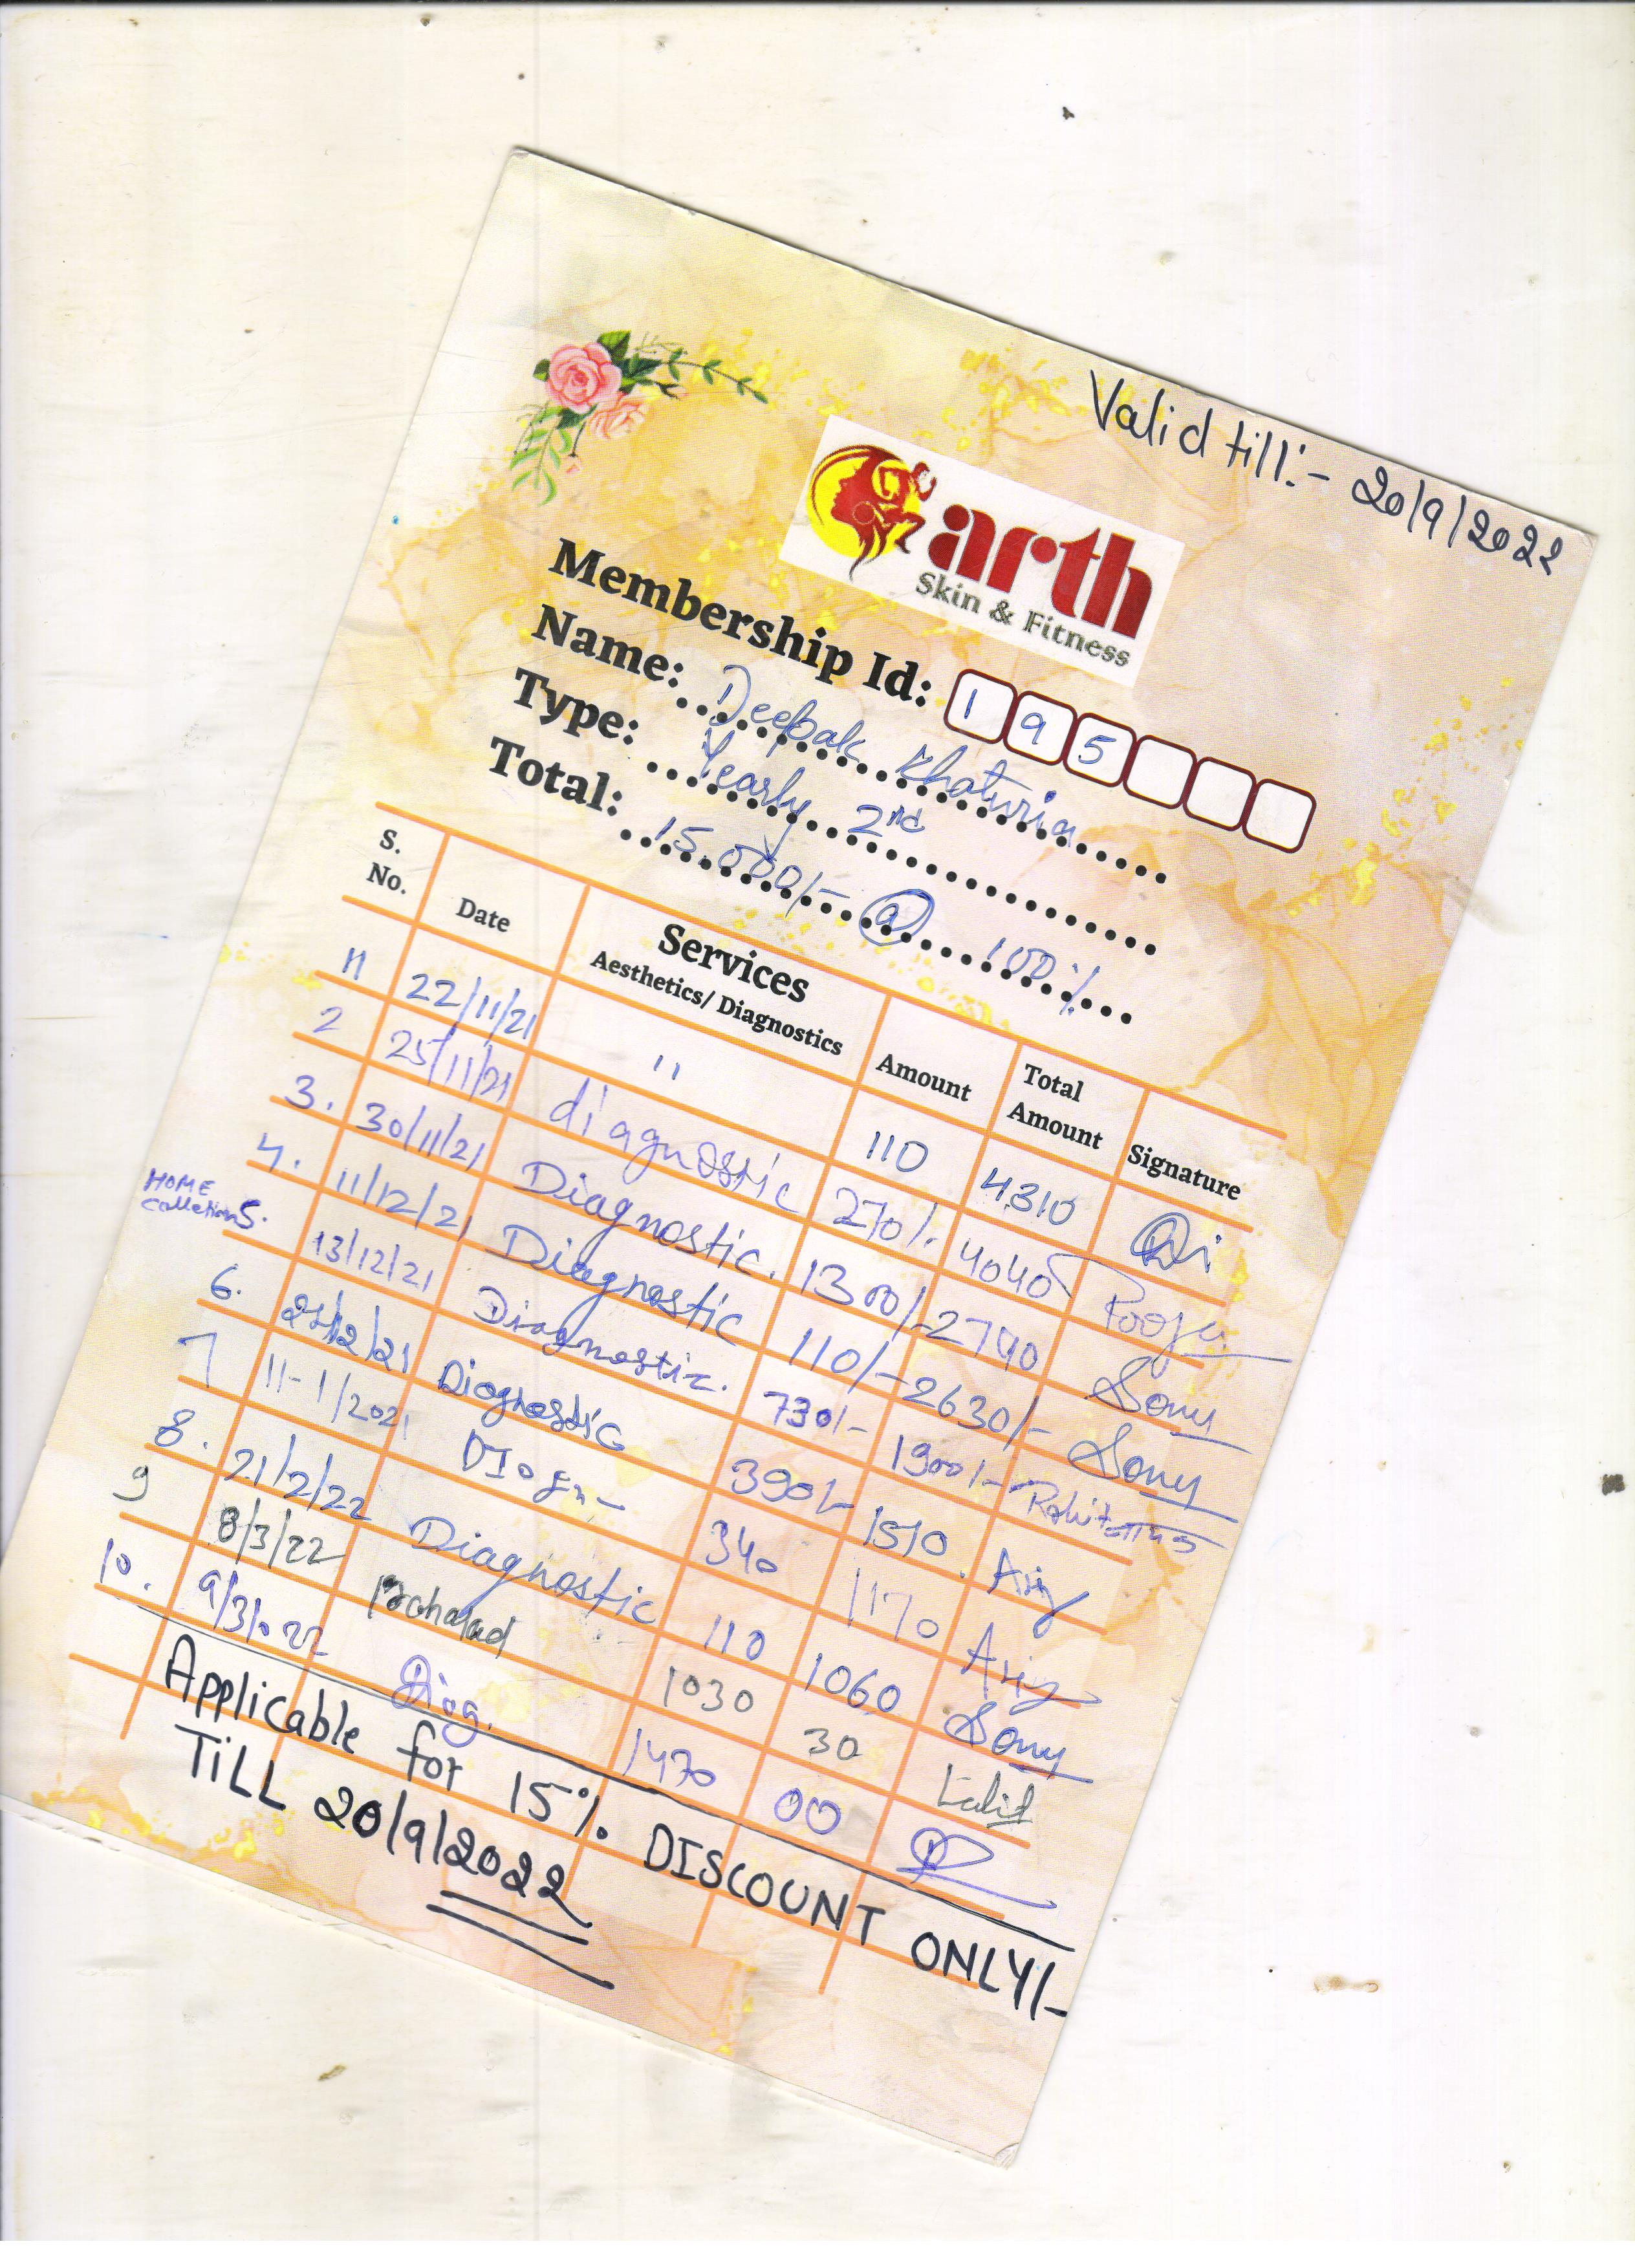 Valid till:- 20/9/2022
arth
Skin & Fitness
Membership Id: 1 9 5
Name: Deepak Khaturia
Type: Yearly 2nd
Total: 15.000/- @ 100%
S. No. Date Services Aesthetics/ Diagnostics Amount Total Amount Signature
22/11/21 " 110 4310
2 25/11/21 diagnostic 270/. 4040 Pooja
3. 30/11/21 Diagnostic. 1300/- 2740 Sonu
4. 11/12/21 Diagnostic 110/- 2630/- Sonu
HOME Collection 5. 13/12/21 Diagnostic. 730/- 1900/-
6. /12/21 Diagnostic 390/- 1510
7 11-1/2021 DIogn- 340 1170
8. 21/2/22 Diagnostic 110 1060 Sonu
9 8/3/22 1030 30 Lalit
10. 9/3/022 Diag. 1470 00
Applicable for 15% DISCOUNT ONLY/-
TiLL 20/9/2022